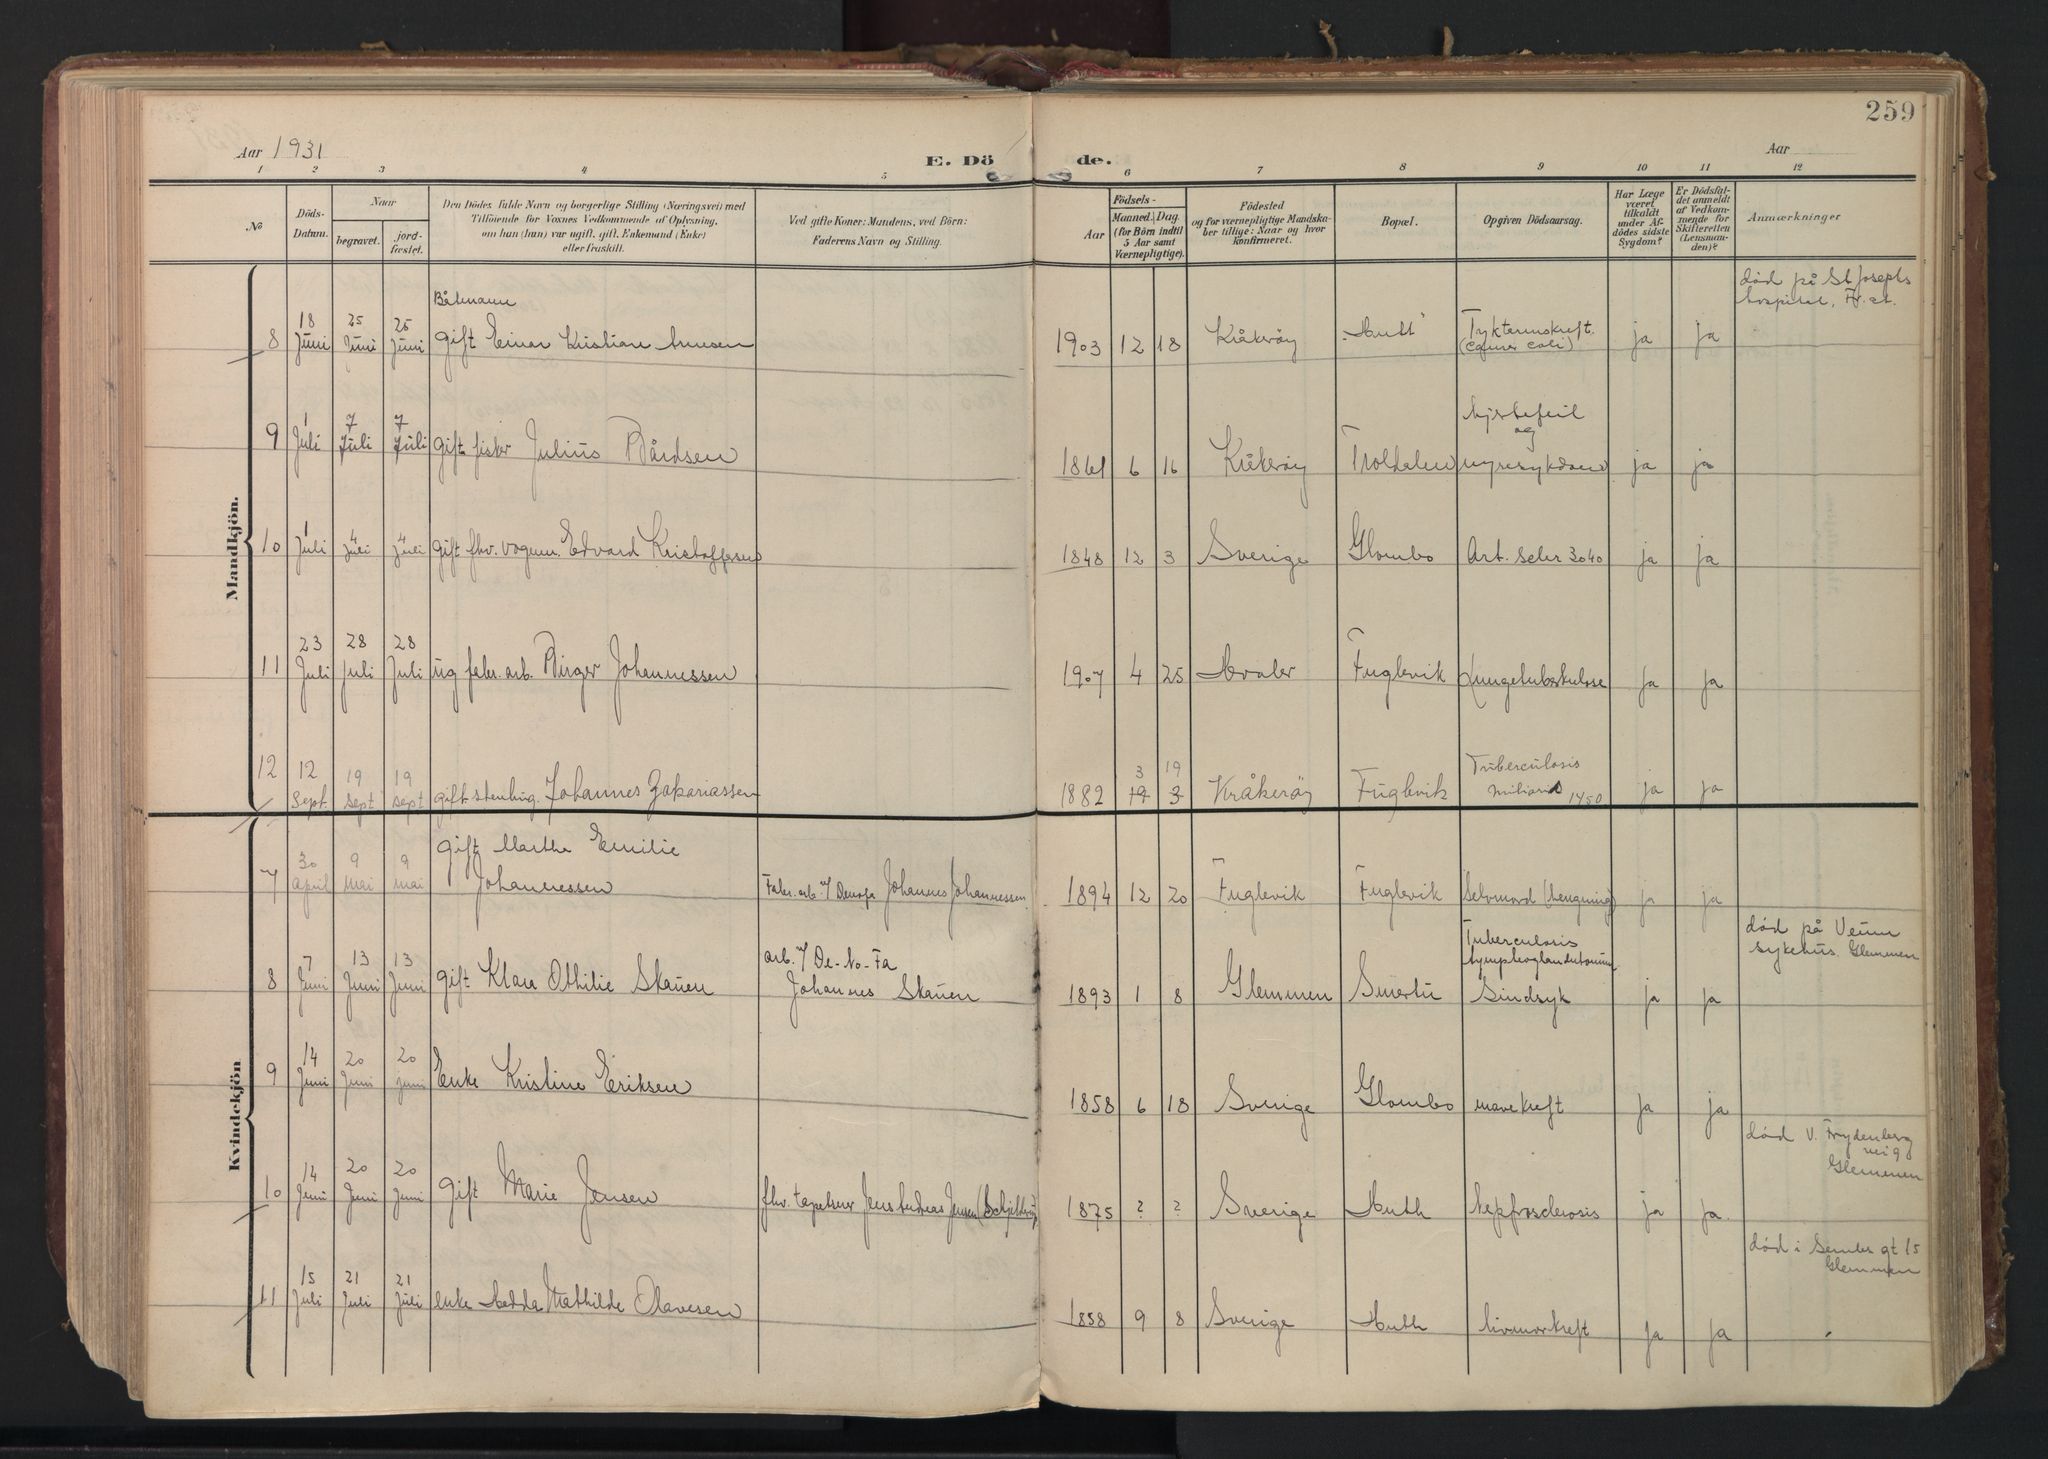 259
Aar 1931
E. Dö
de.
Aar
1 2 3 4 5 6 7 8 9 10 11 12
No
Döds-
Datum.
Naar
begravet.
jord-
fæstet.
Den Dödes fulde Navn og borgerlige Stilling (Næringsvei) med
Tilföiende for Voxnes Vedkommende af Oplysning,
om han (hun) var ugift, gift, Enkemand (Enke)
eller fraskilt.
Ved gifte Koner: Mandens, ved Börn:
Faderens Navn og Stilling.
Födsels-
Aar
Maaned. Dag.
(for Börn indtil
5 Aar samt
Værnepligtige).
Födested
og for værnepligtige Mandska-
ber tillige: Naar og hvor
konfirmeret.
Bopæl.
Opgiven Dödsaarsag.
Har Læge
været
tilkaldt
under Af-
dödes sidste
Sygdom?
Er Dödsfal-
det anmeldt
af Vedkom-
mende for
Skifteretten
(Lensman-
den)?
Anmærkninger
Mandkjön.
8 18 Juni 25 Juni 25 Juni Båtmann
gift Einar Kristian Arnesen 1903 12 18 Kråkeröy Huth Tyktarmskreft.
(cancer coli) ja ja död på St Josephs
hospital, Fr.st.
9 1 Juli 7 Juli 7 Juli gift fisker Julius Bårdsen 1861 6 16 Kråkeröy Troldalen hjertefeil
og
nyresykdom ja ja
10 1 Juli 4 Juli 4 Juli gift fhv. vognm. Edvard Kristoffersen 1848 12 3 Sverige Glombo Art. scler 3040 ja ja
11 23 Juli 28 Juli 28 Juli ug fabr. arb. Birger Johannessen 1907 4 25 Hvaler Fuglevik Lungetuberkulose ja ja
12 12 Sept. 19 Sept 19 Sept gift stenhug. Johannes Zakariassen 1882 3 19 19 3 Kråkeröy Fuglevik Tuberculosis
miliaris 1450 ja ja
Kvindekjön
7 30 April 9 mai 9 mai gift Marthe Emilie
Johannessen Fabr. arb. v/ Denofa Johannes Johannessen 1894 12 20 Fuglevik Fuglevik Selvmord (hengning) ja ja
8 7 Juni 13 Juni 13 Juni gift Klara Othilie Skauen arb. v/ De-No-Fa
Johannes Skauen 1893 1 8 Glemmen Smertu Tuberculosis
lymphoglandularum
Sindsyk ja ja död på Veum
sykehus. Glemmen
9 14 Juni 20 Juni 20 juni Enke Kristine Eriksen 1858 6 18 Sverige Glombo mavekreft ja ja
10 14 Juni 20 Juni 20 Juni gift Marie Jensen fhv. tapetserer Jens Andreas Jensen 1875 ? ? Sverige Huth Nephrosclerosis ja ja död V. Frydenberg
vei 9
Glemmen
11 15 Juli 21 Juli 21 Juli enke Hedda Mathilde Olavesen 1858 9 8 Sverige Huth livmorkreft ja ja död i gt 15
Glemmen